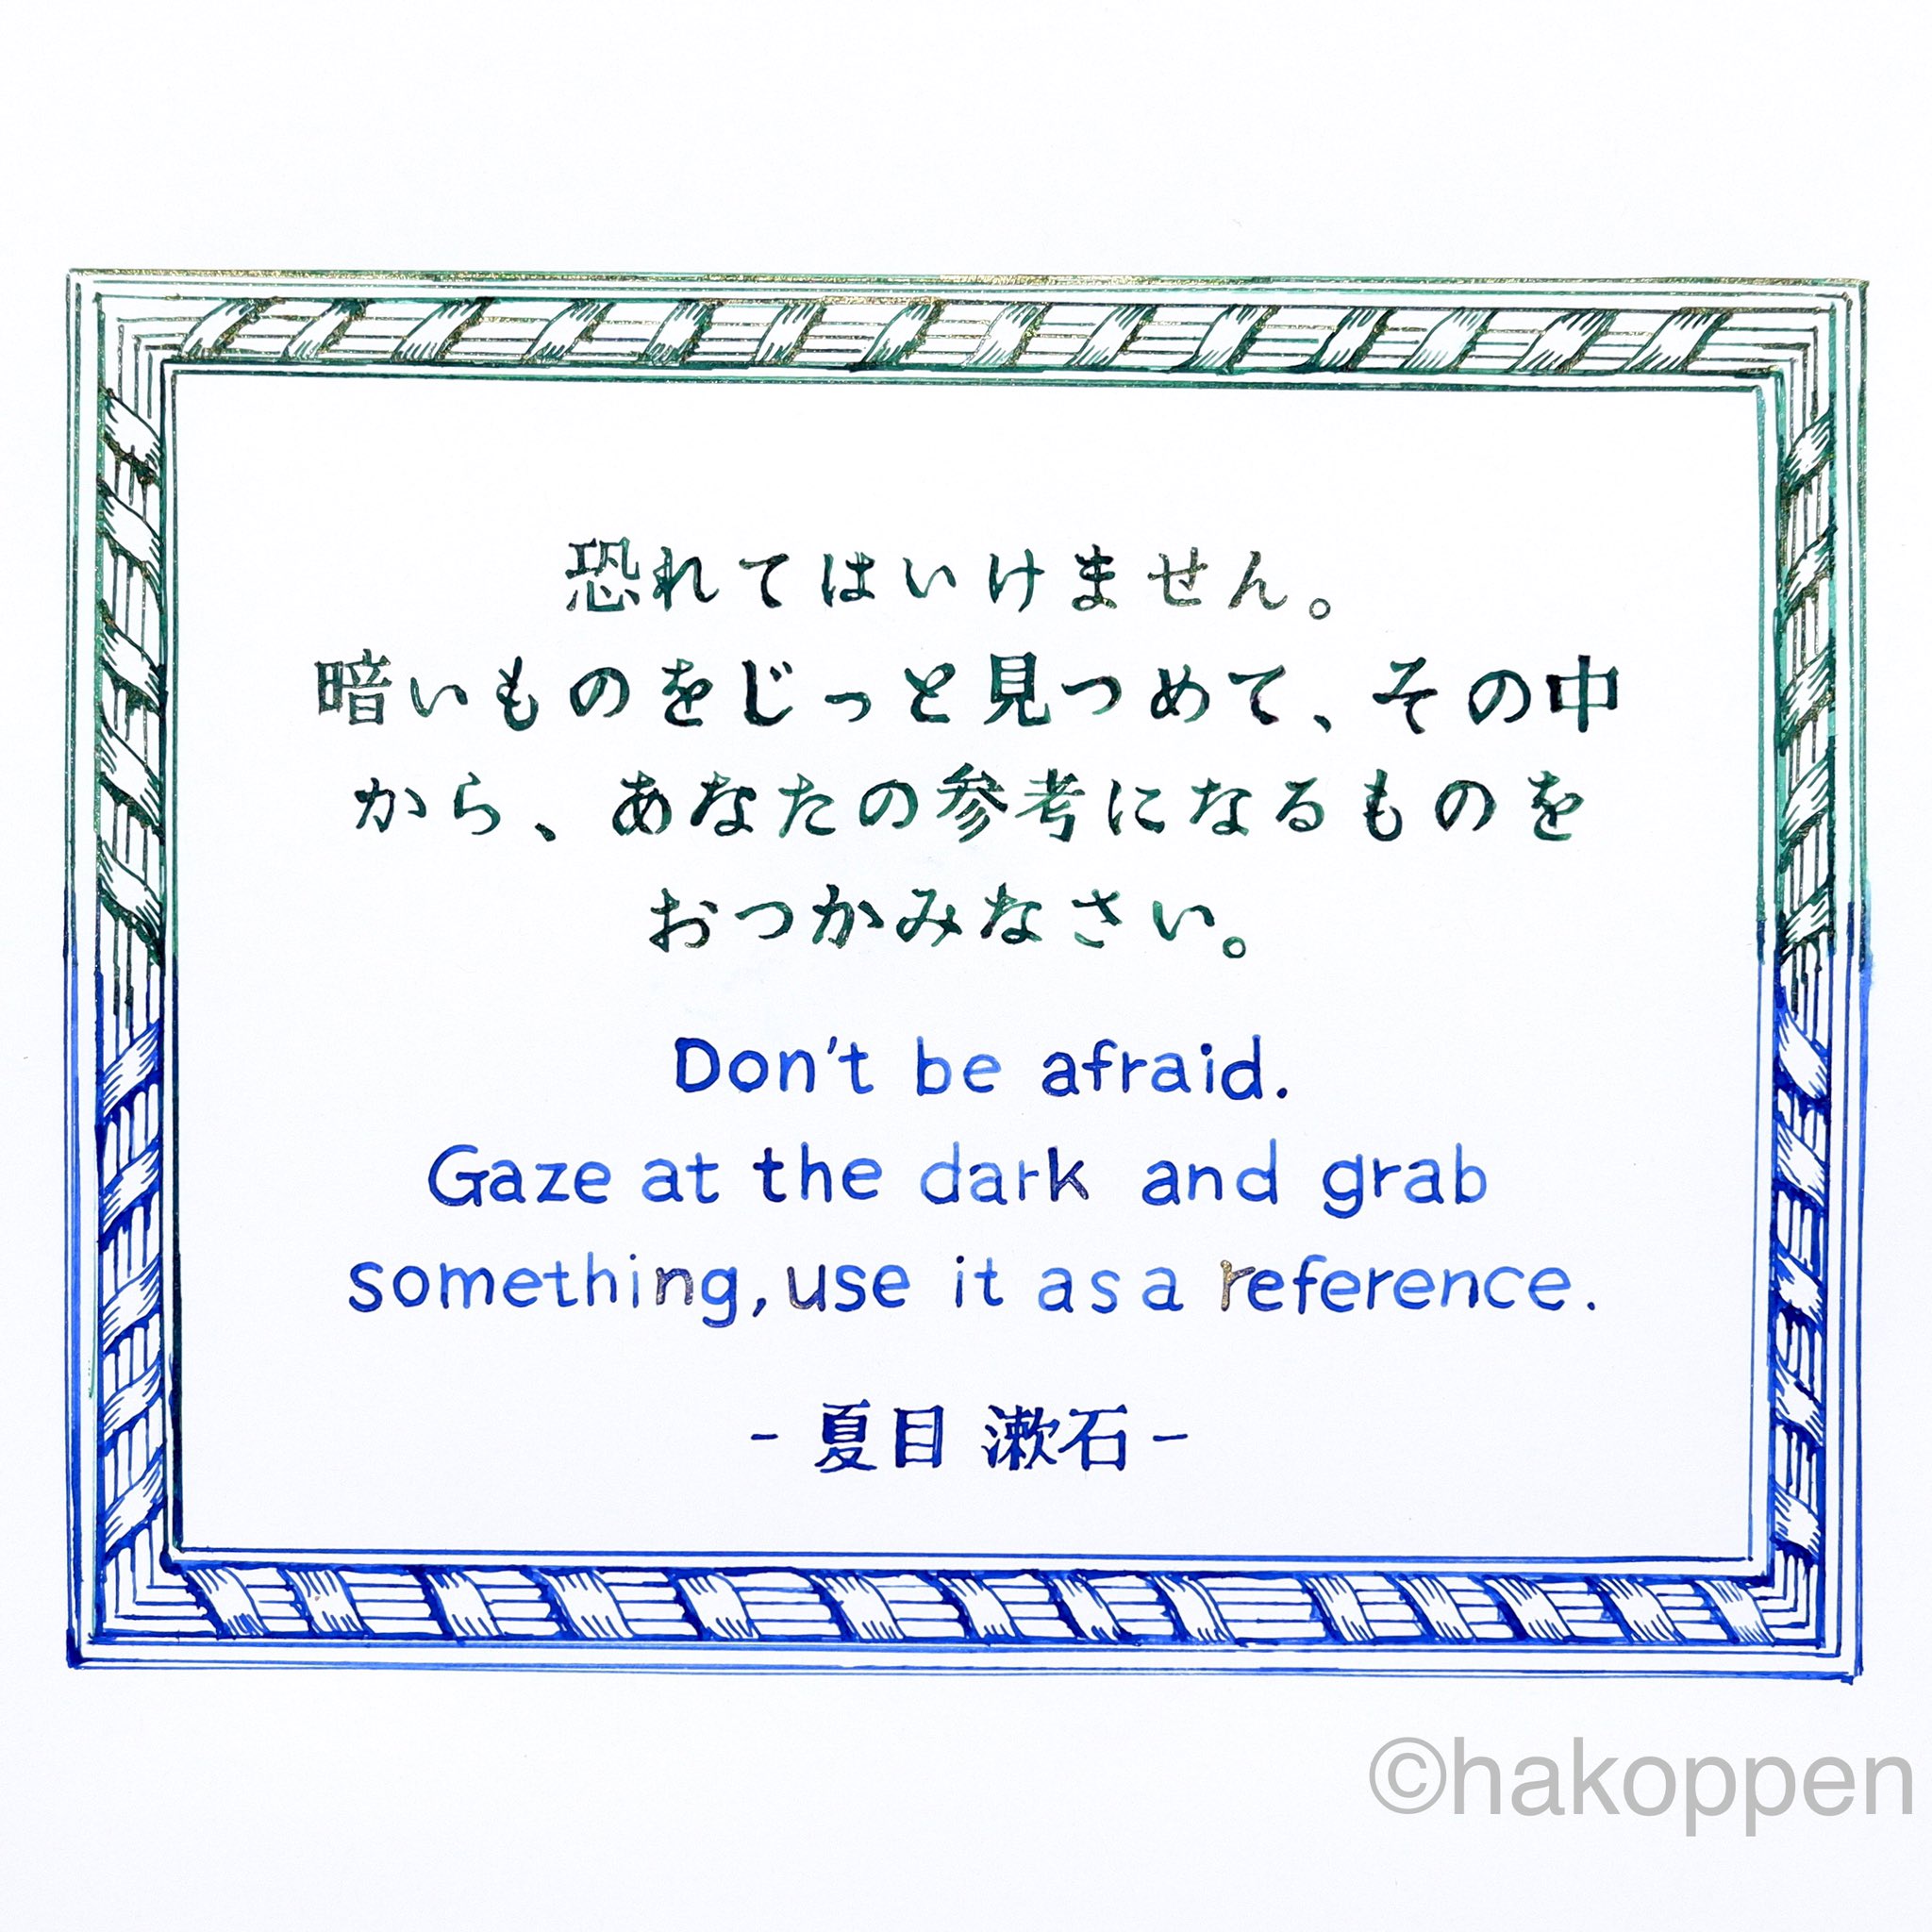 恐れてはいけません。
暗いものをじっと見つめて、その中
から、あなたの参考になるものを
おつかみなさい。
Don't be afraid.
Gaze at the dark and grab
something, use it as a reference.
- 夏目 漱石 -
©hakoppen